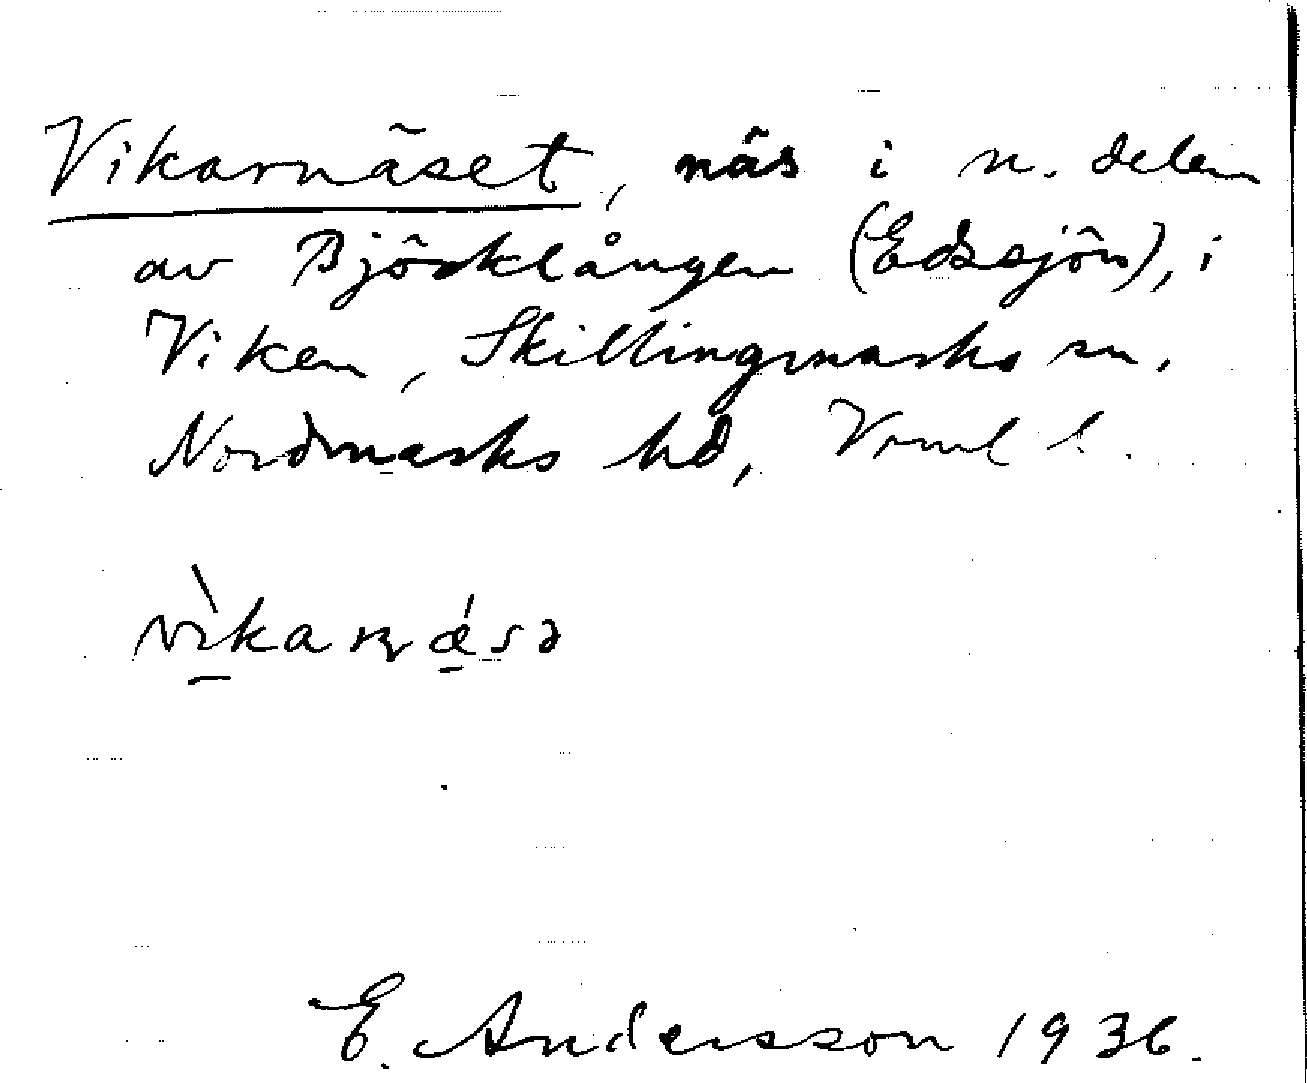 Vikarnäset, näs i n. delen
av Björklången (Edssjön), i
Viken, Skillingmarks sn,
Nordmarks hd, Vrml l.
vìkaɳǽsə
E. Andersson 1936.